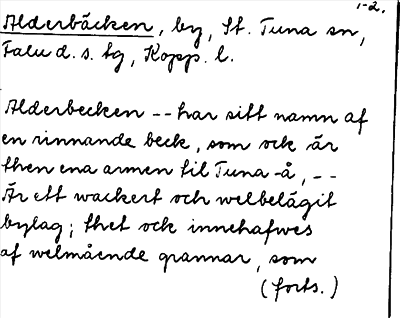 1-2.
Alderbäcken, by, St. Tuna sn,
Falu d. s. tg, Kopp. l.
Alderbecken -- har sitt namn af
en rinnande beck, som ock är
then ena armen til Tuna-å, --
Är ett wackert och welbelägit
bylag; thet ock innehafwes
af welmående grannar, som
(forts.)